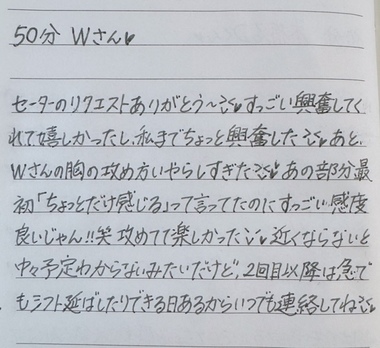 50分 Wさん♥
セーターのリクエストありがとう〜♥すっごい興奮してく
れて嬉しかったし、私までちょっと興奮した♥あと、
Wさんの胸の攻め方いやらしすぎた♥あの部分最
初「ちょっとだけ感じる」って言ってたのにすっごい感度
良いじゃん!!笑 攻めてて楽しかった♥近くならないと
中々予定わからないみたいだけど、2回目以降は急で
もシフト延ばしたりできる日あるからいつでも連絡してね♥